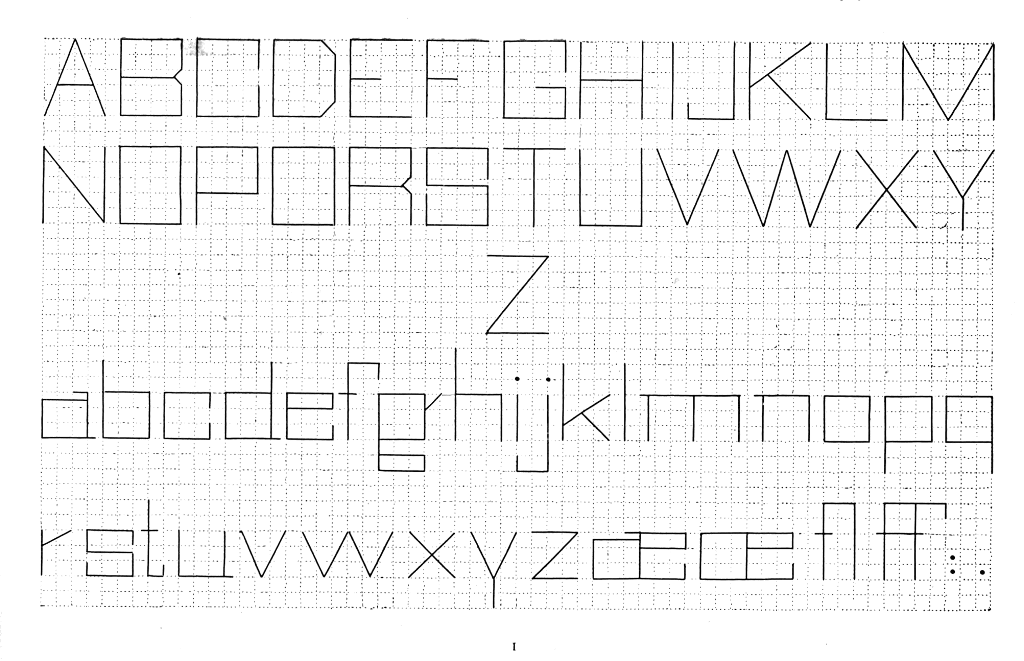 ABCDEFGHIJKLM
NOPQRSTUVWXY
Z
abcdefghijklmnopq
rstuvwxyzæœflff:.
I